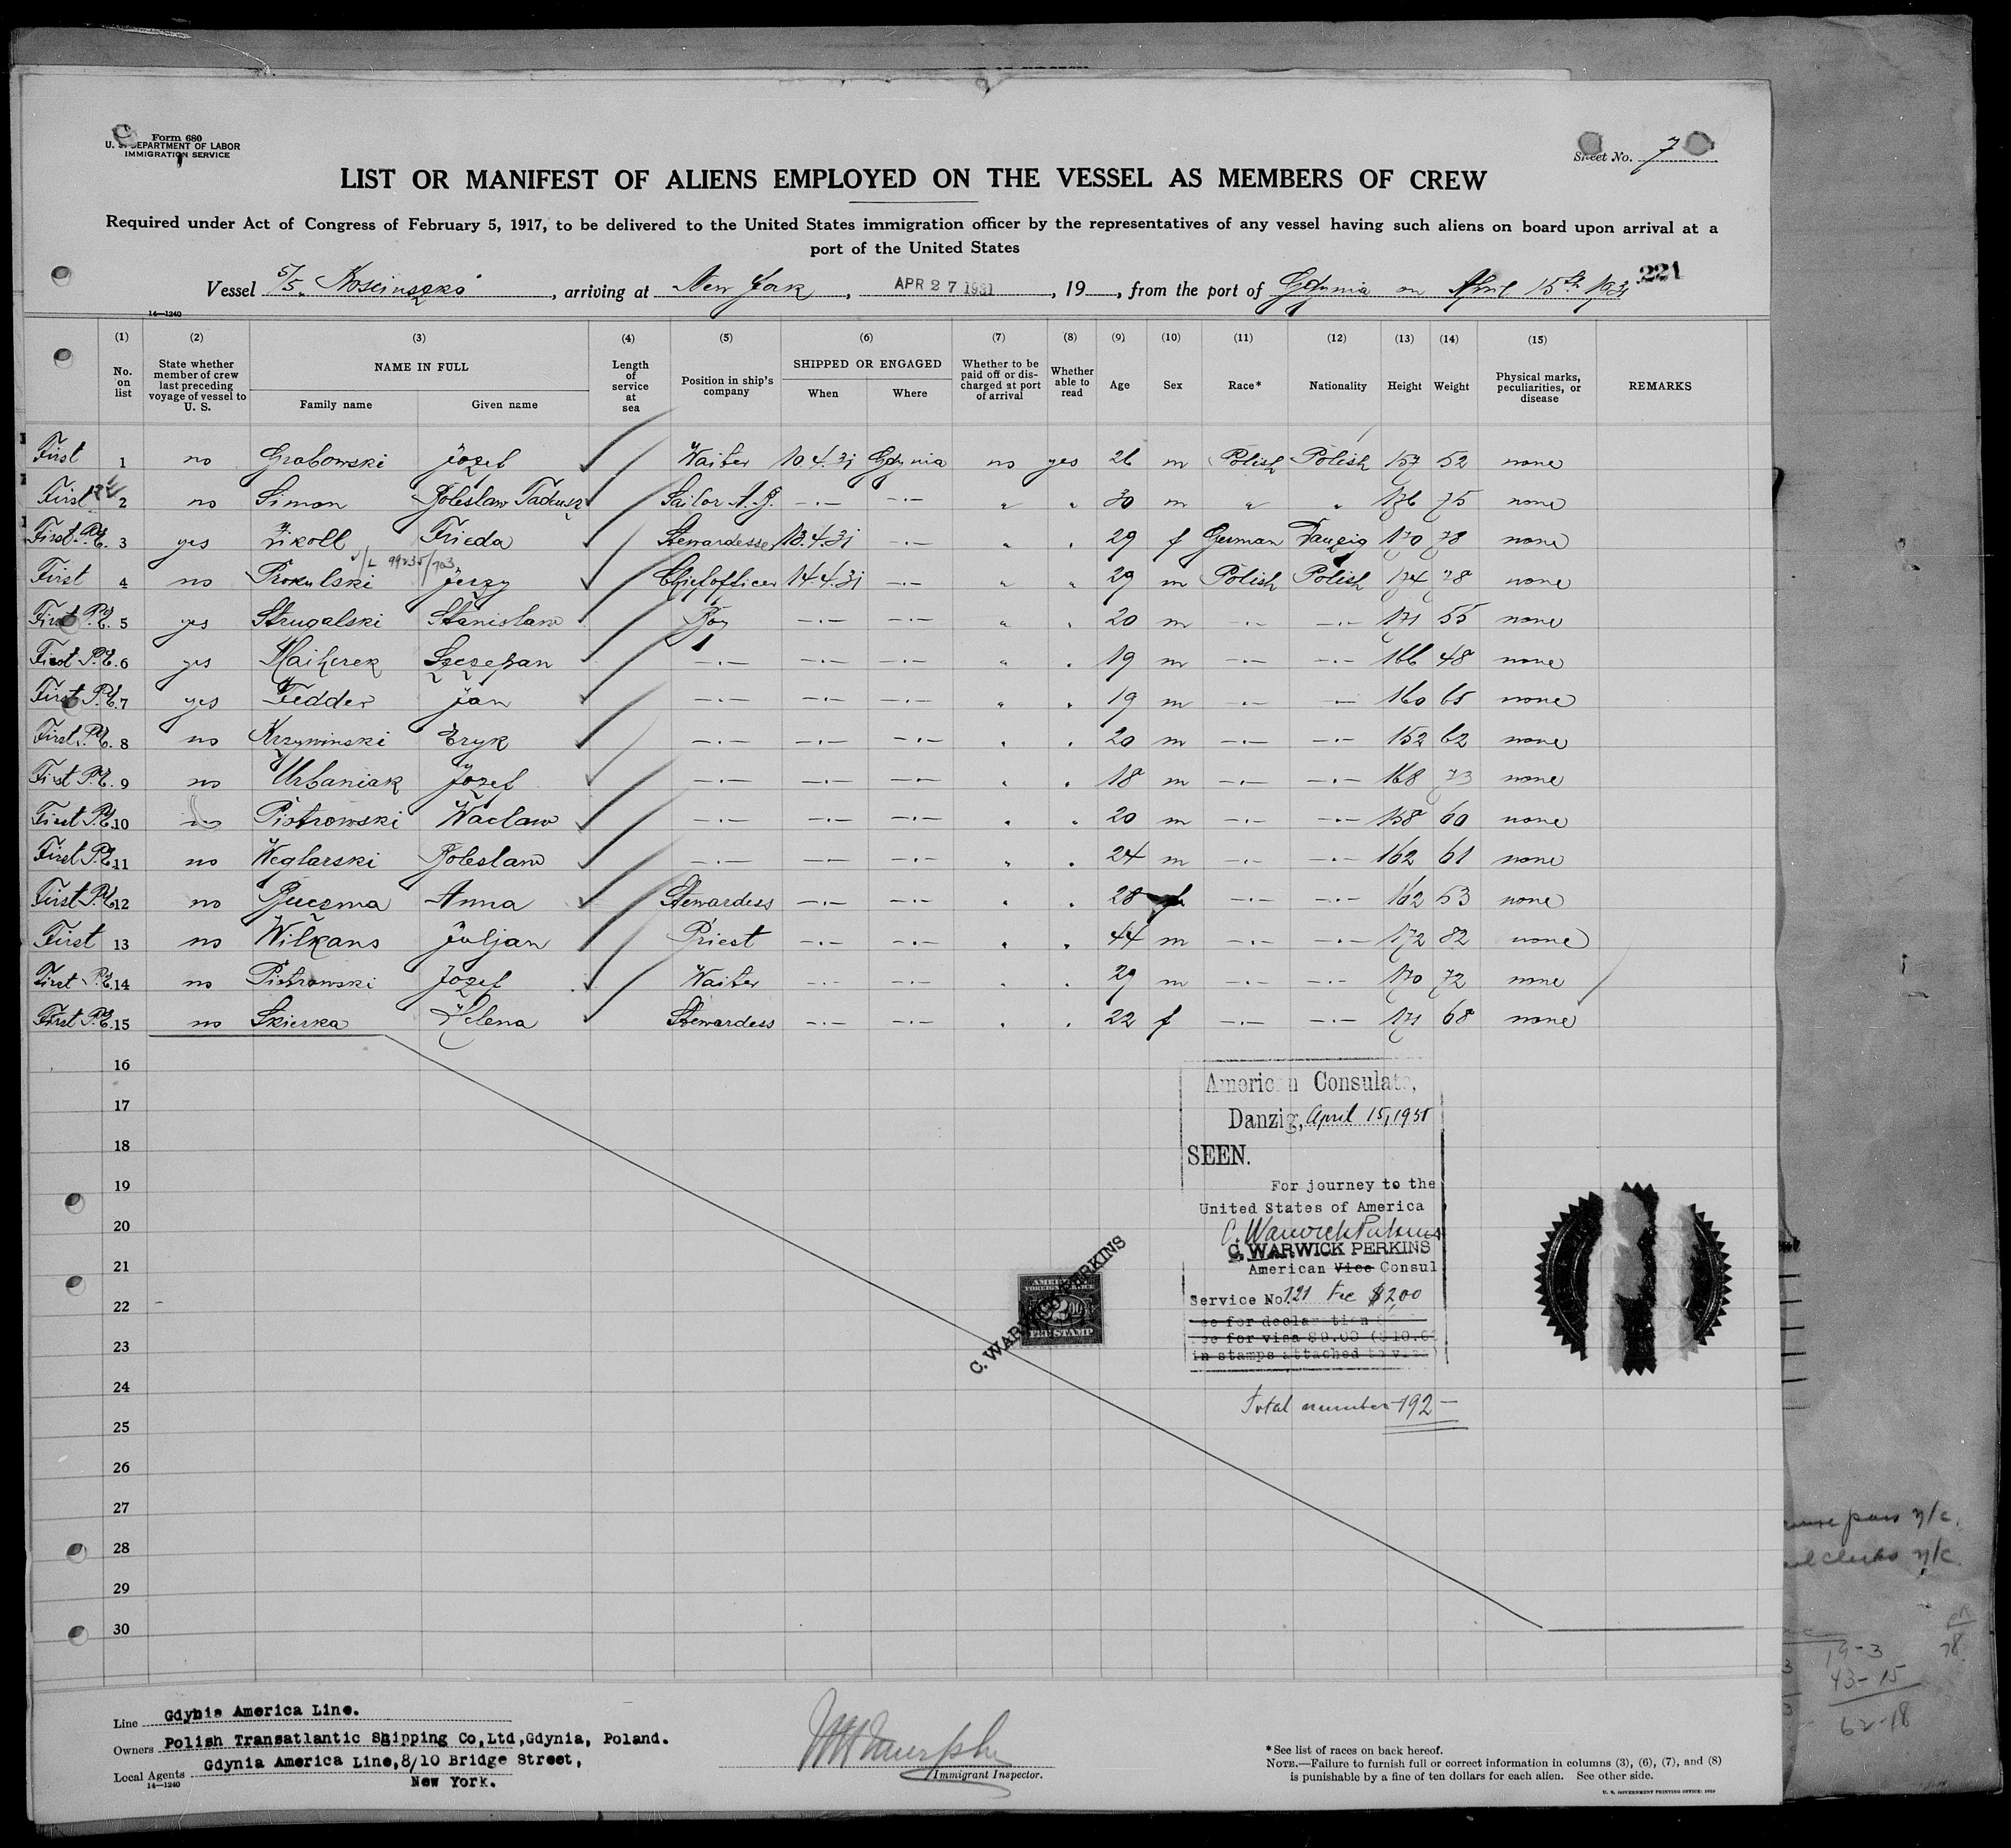 Form 680
U. S. DEPARTMENT OF LABOR
IMMIGRATION SERVICE
Sheet No. 7
LIST OR MANIFEST OF ALIENS EMPLOYED ON THE VESSEL AS MEMBERS OF CREW
Required under Act of Congress of February 5, 1917, to be delivered to the United States immigration officer by the representatives of any vessel having such aliens on board upon arrival at a
port of the United States
221
Vessel S/S. Kosciuszko, arriving at New York, APR 27 1931, 19, from the port of Gdynia on April 15th 1931
14—1240
(1) (2) (3) (4) (5) (6) (7) (8) (9) (10) (11) (12) (13) (14) (15)
No. on list
State whether member of crew last preceding voyage of vessel to U. S.
NAME IN FULL
Family name Given name
Length of service at sea
Position in ship's company
SHIPPED OR ENGAGED
When Where
Whether to be paid off or discharged at port of arrival
Whether able to read
Age Sex Race* Nationality Height Weight
Physical marks, peculiarities, or disease
REMARKS
First 1 no Grabowski Józef Waiter 10.4.31 Gdynia no yes 26 m Polish Polish 157 52 none
First 2 no Simon Boleslaw Tadeusz Sailor A.B. —.— —.— " " 30 m " " 176 75 none
First P.E. 3 yes Zikoll Frieda Stewardesse 13.4.31 —.— " " 29 f German Danzig 170 78 none
99235/703
First 4 no Prokulski Jerzy Chief officer 14.4.31 —.— " " 29 m Polish Polish 174 78 none
First P.E. 5 yes Strugalski Stanislaw Boy —.— —.— " " 20 m —.— —.— 171 55 none
First P.E. 6 yes Maiherek Szczepan —.— —.— —.— " " 19 m —.— —.— 166 48 none
First P.E. 7 yes Fedder Jan —.— —.— —.— " " 19 m —.— —.— 160 65 none
First P.E. 8 no Krzywinski Eryk —.— —.— —.— " " 20 m —.— —.— 152 62 none
First P.E. 9 no Urbaniak Józef —.— —.— —.— " " 18 m —.— —.— 168 73 none
First P.E. 10 no Piotrowski Waclaw —.— —.— —.— " " 20 m —.— —.— 158 60 none
First P.E. 11 no Weglarski Boleslaw —.— —.— —.— " " 24 m —.— —.— 162 61 none
First P.E. 12 no Anna Stewardess —.— —.— " " 28 f —.— —.— 162 53 none
First 13 no Wilkans Juljan Priest —.— —.— " " 44 m —.— —.— 172 82 none
First P.E. 14 no Piotrowski Józef Waiter —.— —.— " " 29 m —.— —.— 170 72 none
First P.E. 15 no Skierka Helena Stewardess —.— —.— " " 22 f —.— —.— 171 68 none
16
17
18
19
20
21
22
23
24
25
26
27
28
29
30
American Consulate,
Danzig, April 15, 1931
SEEN.
For journey to the
United States of America
C. Warwick Perkins
C. WARWICK PERKINS
American Vice Consul
Service No. 721 Fee $2.00
Fee for declaration
Fee for visa $9.00 ($10.0
in stamps attached to visa)
Total number 192 —
C. WARWICK PERKINS
AMERICAN
FOREIGN SERVICE
$2.00
FEE STAMP
Line Gdynia America Line.
Owners Polish Transatlantic Shipping Co,Ltd,Gdynia, Poland.
Local Agents Gdynia America Line,8/10 Bridge Street,
New York.
14—1240
Immigrant Inspector.
*See list of races on back hereof.
NOTE.—Failure to furnish full or correct information in columns (3), (6), (7), and (8)
is punishable by a fine of ten dollars for each alien. See other side.
U. S. GOVERNMENT PRINTING OFFICE: 1929
pass n/c.
clerks n/c
19-3
43-15
62-18